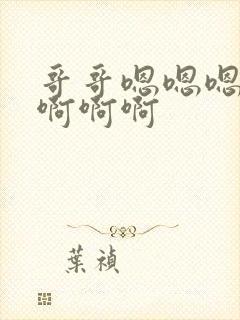 哥哥嗯嗯嗯
啊啊啊
葉禎